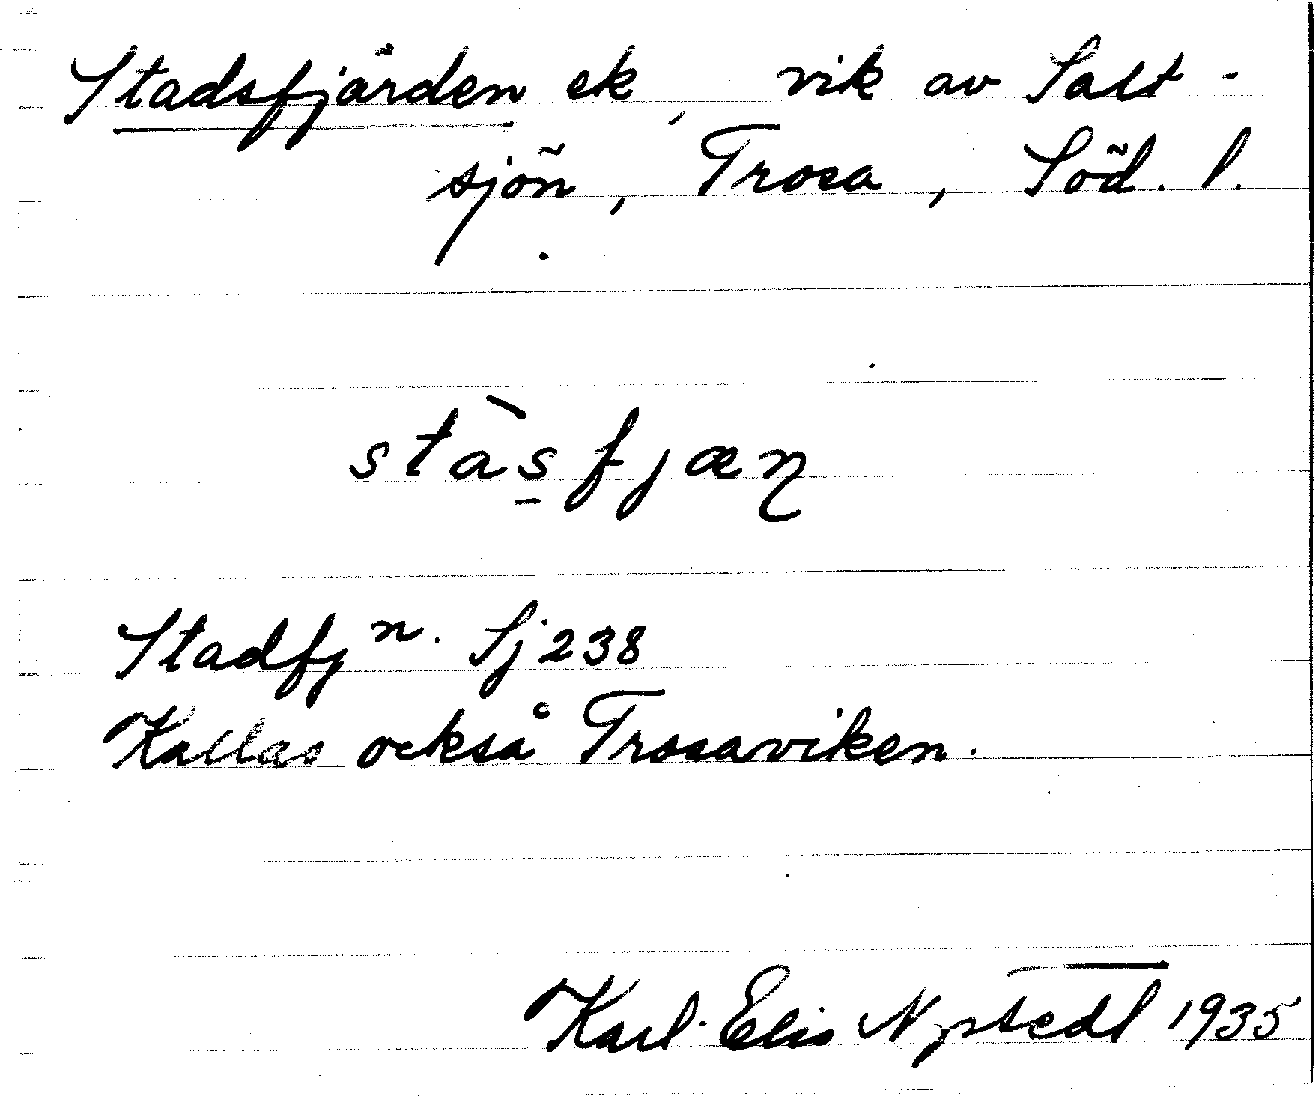 Stadsfjärden ek, vik av Salt-
sjön, Trosa, Söd. l.
stàsfjæn
Stadfjn. Sj 238
Kallas också Trosaviken.
Karl-Elis Nystedt 1935